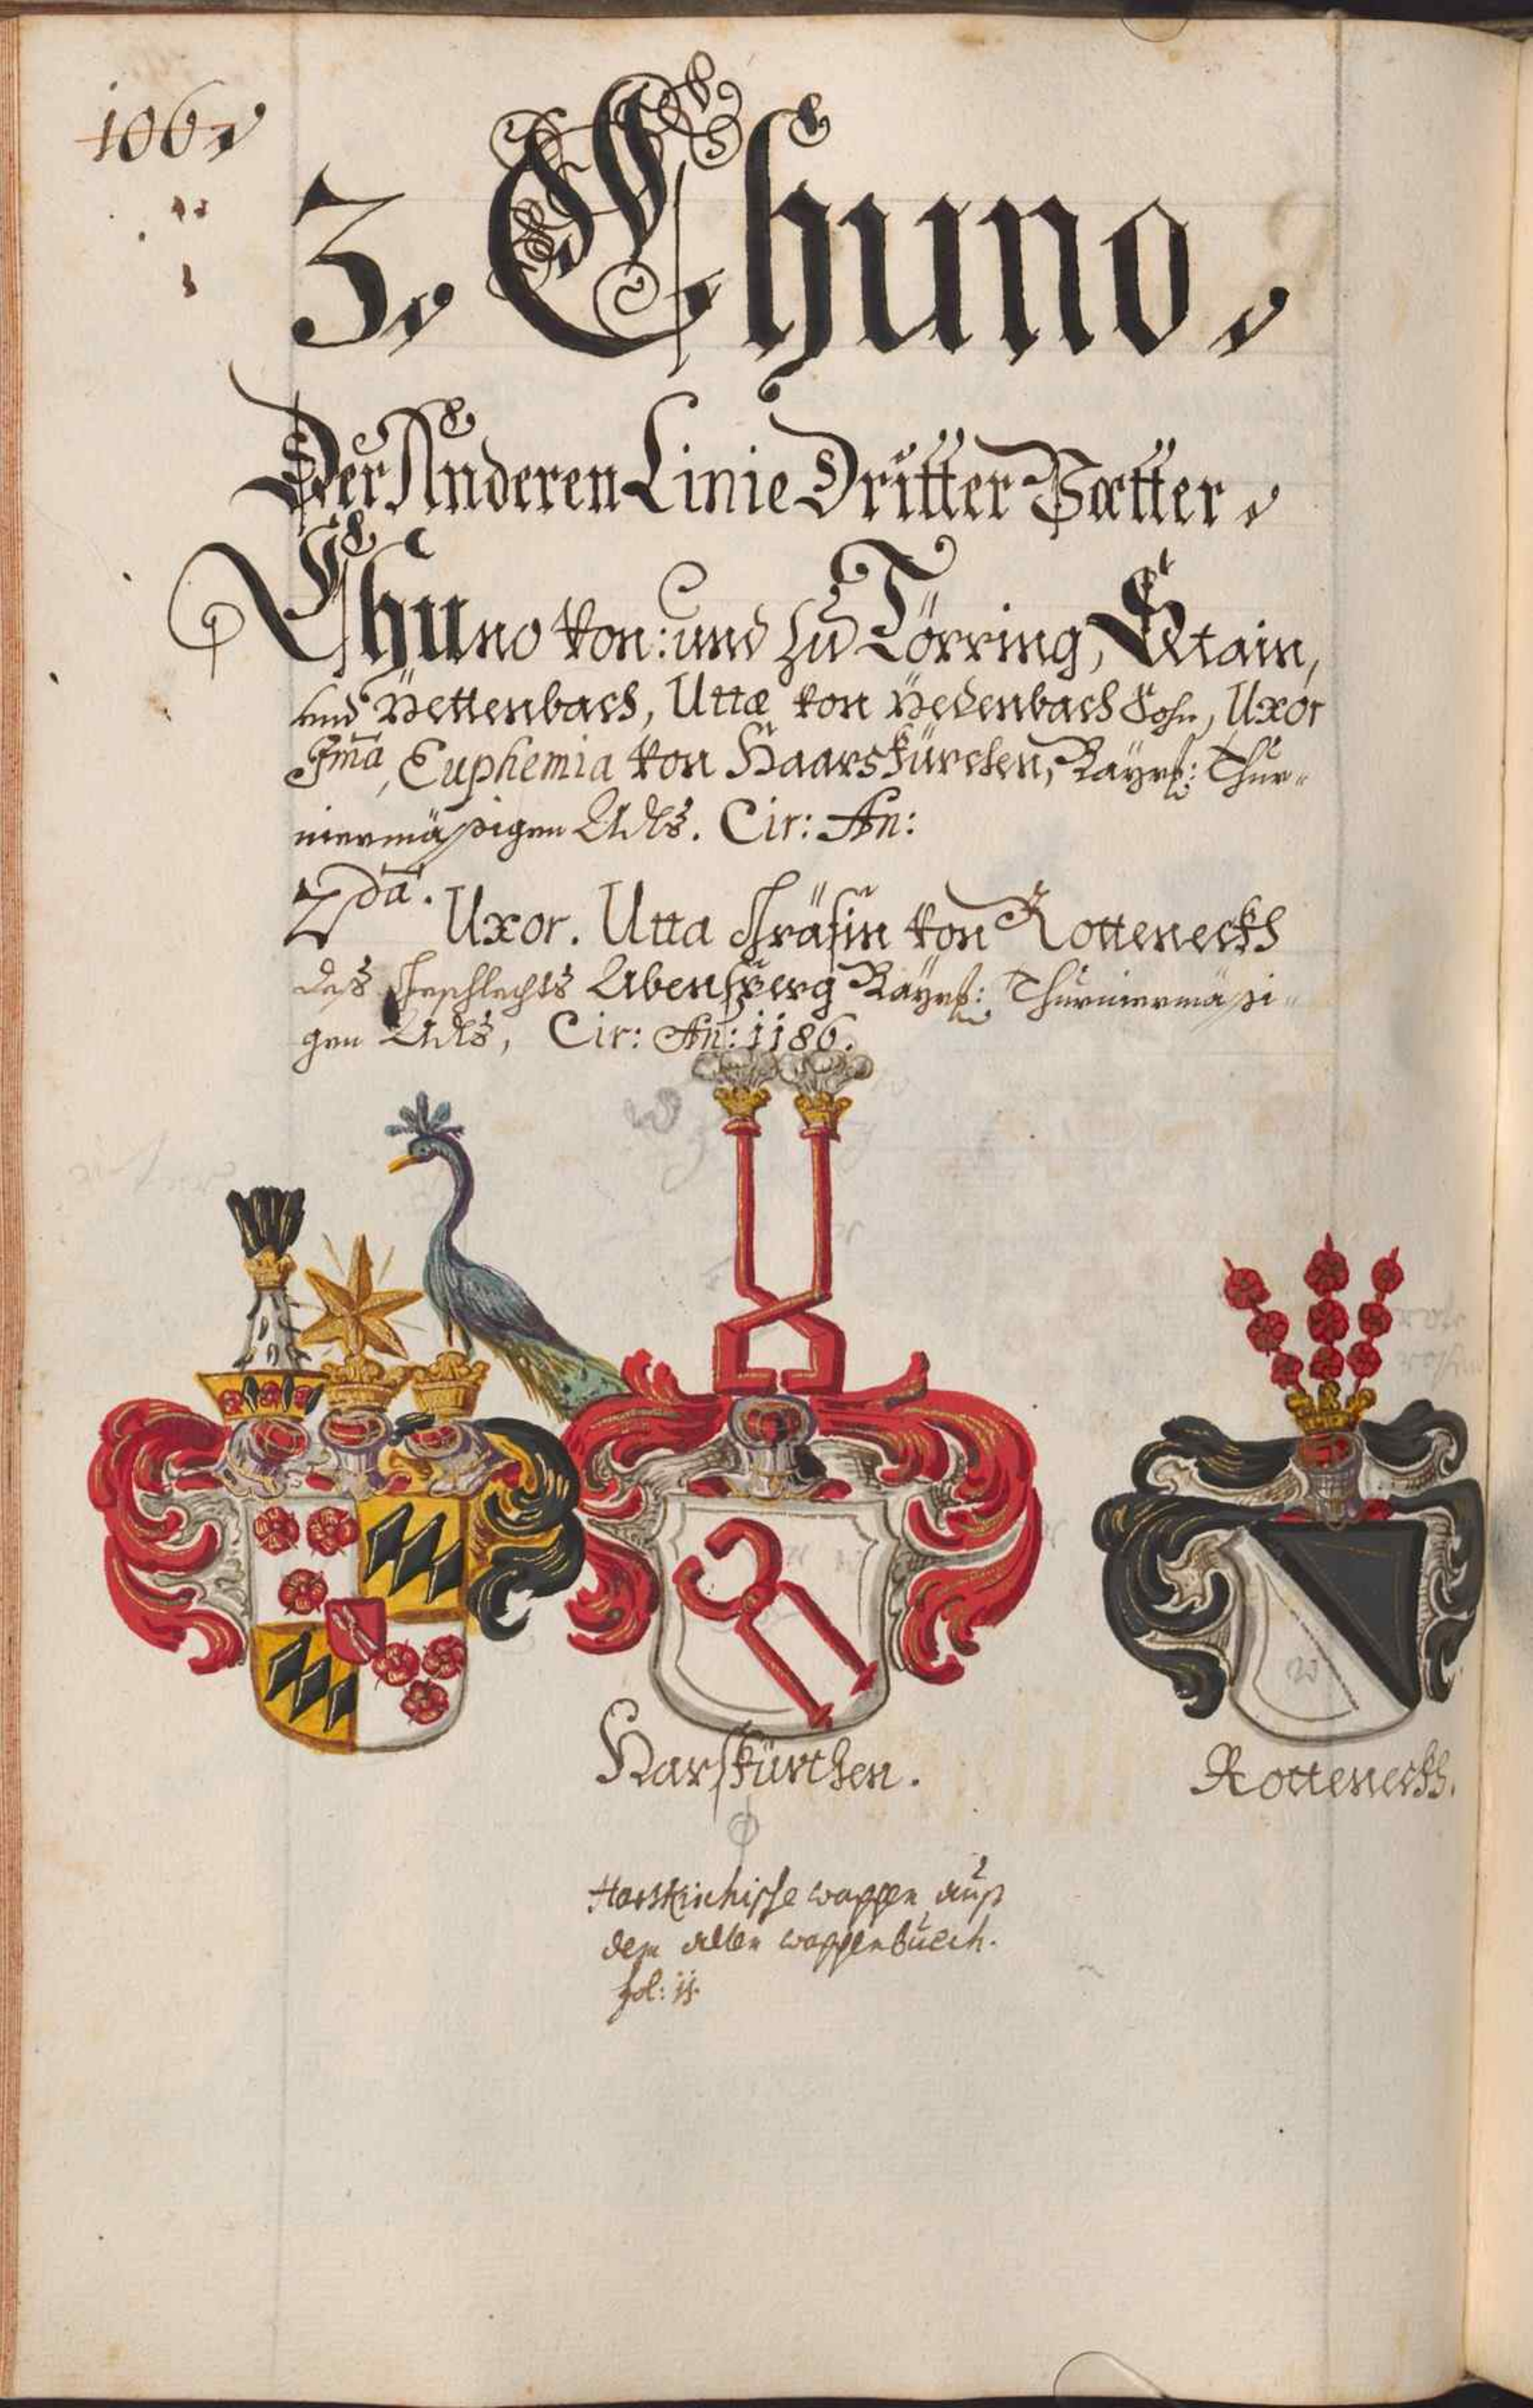 106.
3. Chuno,
Der Anderen Linie Dritter Vætter,
Chuno von: und zu Törring, Stain,
und Pettenbach, Uttæ von Pedenbach Sohn, Uxor
Ima, Euphemia von Haarskürchen, Bayrs: Thur-
niermäßigen Adls. Cir: An:
2da.
Uxor. Utta Gräfin von Rotteneckh
deß Geschlechts Abensperg Bayrs: Thurniermäßi-
gen Adls, Cir: An: 1186.
Harskürchen.
Rotteneckh.
Harskirchische wappen auß
dem alten wappenbuech.
fol: 11.